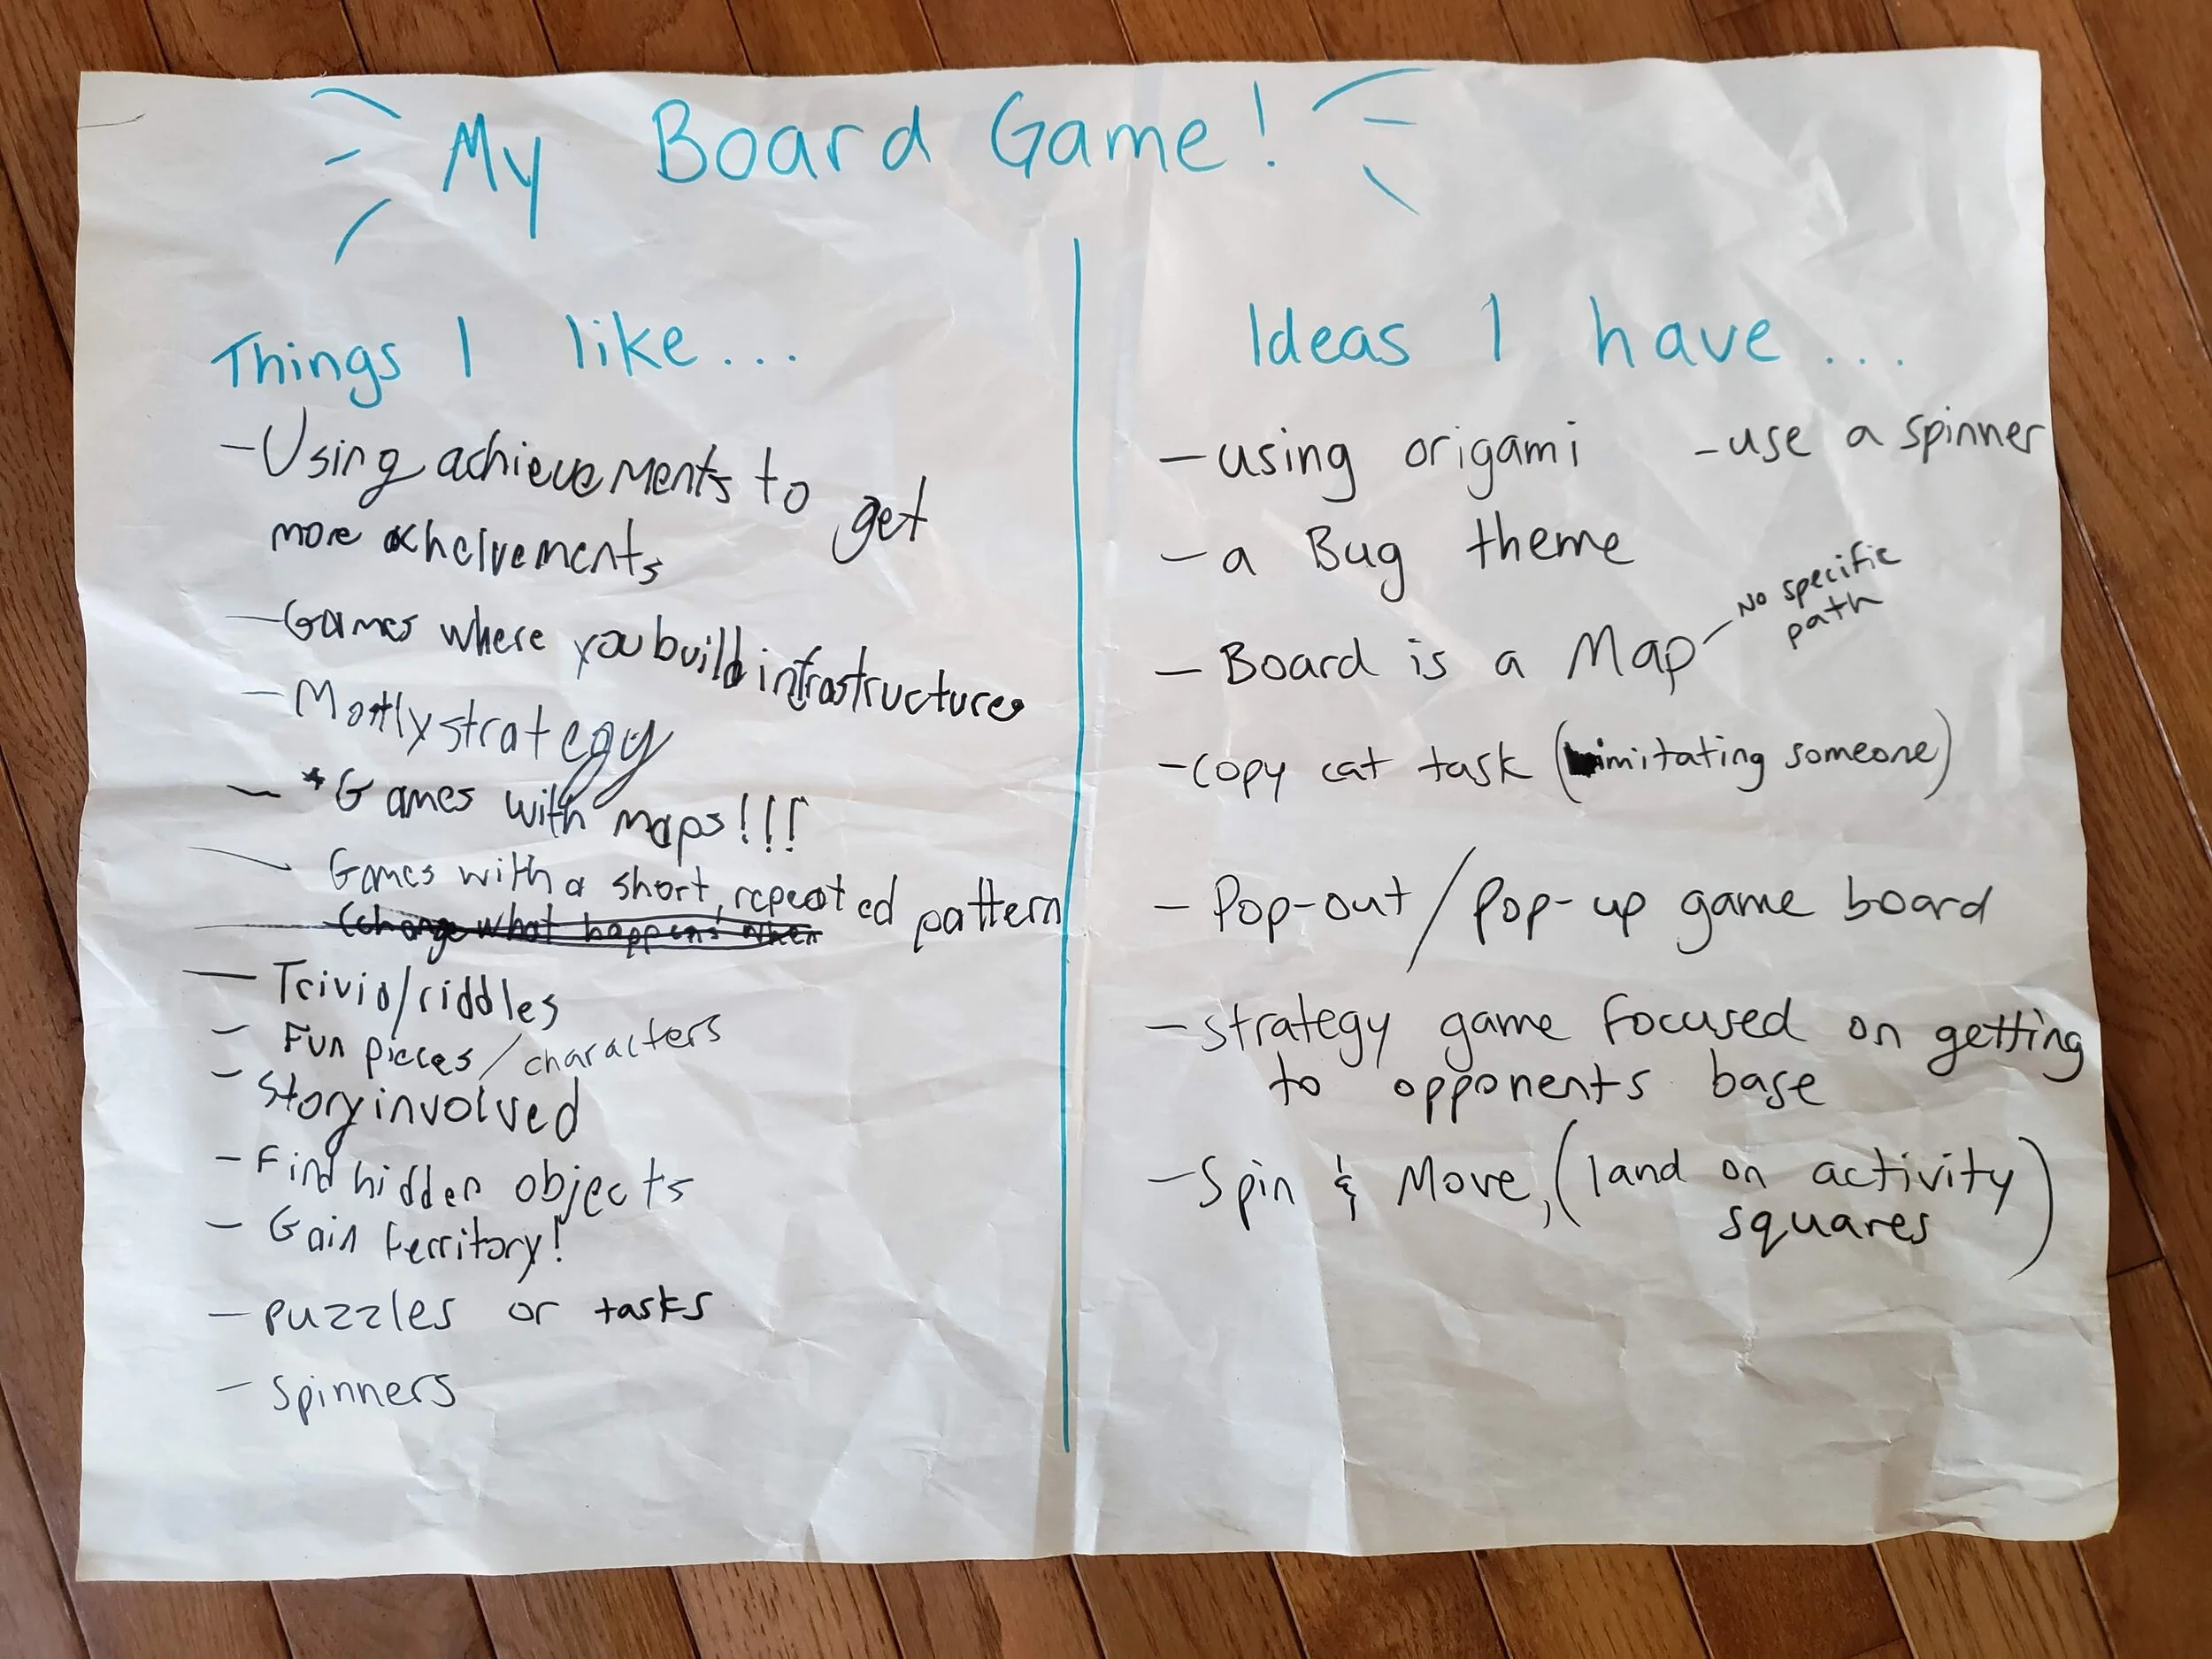 My Board Game!
Things I like...
- Using achievements to get
more acheivements
- Games where you build infrastructure
- Mostly strategy
- *Games with maps!!!
- Games with a short, repeated pattern
(change what happens when
- Trivia/riddles
- Fun pieces/characters
- Story involved
- Find hidden objects
- Gain territory!
- puzzles or tasks
- Spinners
Ideas I have...
- using origami - use a spinner
- a Bug theme
- Board is a Map - No specific
path
- copy cat task (imitating someone)
- Pop-out / pop-up game board
- strategy game focused on getting
to opponents base
- Spin & Move, (land on activity
squares)